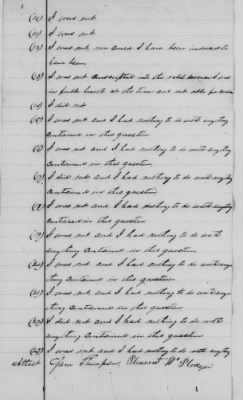 (10) I was not
(11) I was not
(12) I was not nor ever I have been
have been
(13) I was not
in public at the time and not able for
(14) I did not
(15) I was not and I had nothing to do with anything
contained in this question
(16) I was not and I had nothing to do with anything
contained in this question
(17) I did not and I had nothing to do with anything
contained in this question
(18) I was not and I had nothing to do with anything
contained in this question
(19) I was not and I had nothing to do with
anything contained in this question
(20) I was not and I had nothing to do with any
thing contained in this question
(21) I was not and I had nothing to do with any
thing contained in this question
(22) I did not and I had nothing to do with
anything contained in this question
(23) I was not and I had nothing to do with anything
Attest Thompson Pleasant W